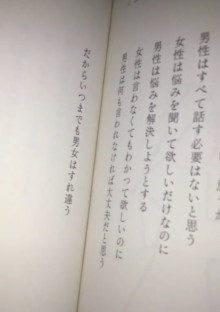 男性はすべて話す必要はないと思う
女性は悩みを聞いて欲しいだけなのに
男性は悩みを解決しようとする
女性は言わなくてもわかって欲しいのに
男性は何も言われなければ大丈夫だと思う
だからいつまでも男女はすれ違う